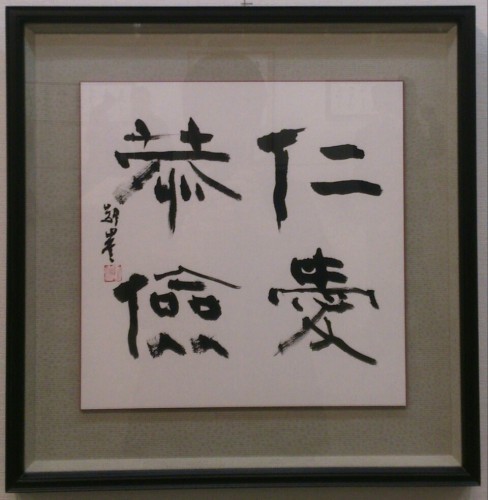 仁愛
恭儉